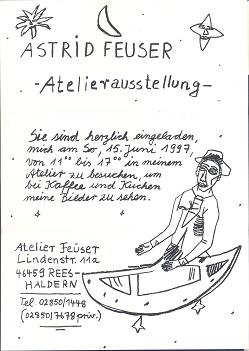 ASTRID FEUSER
-Atelierausstellung-
Sie sind herzlich eingeladen,
mich am So, 15. Juni 1997,
von 11⁰⁰ bis 17⁰⁰ in meinem
Atelier zu besuchen, um
bei Kaffee und Kuchen
meine Bilder zu sehen.
Atelier Feuser
Lindenstr. 11a
46459 REES-
HALDERN
Tel. 02850/1448
(02850/7478 priv.)